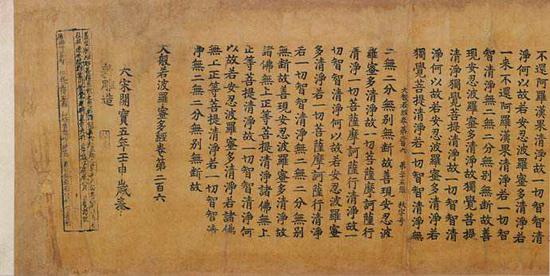 不還阿羅漢果清淨故一切智智清
淨何以故若安忍波羅蜜多清淨若
一來不還阿羅漢果清淨若一切智
智清淨無二無二分無別無斷故善
現安忍波羅蜜多清淨故獨覺菩提
清淨獨覺菩提清淨故一切智智清
淨何以故若安忍波羅蜜多清淨若
獨覺菩提清淨若一切智智清淨無
大般若經卷第二百六 第十五張 秋字号
二無二分無別無斷故善現安忍波
羅蜜多清淨故一切菩薩摩訶薩行
清淨一切菩薩摩訶薩行清淨故一
切智智清淨何以故若安忍波羅蜜
多清淨若一切菩薩摩訶薩行清淨
若一切智智清淨無二無二分無別
無斷故善現安忍波羅蜜多清淨故
諸佛無上正等菩提清淨諸佛無上
正等菩提清淨故一切智智清淨何
以故若安忍波羅蜜多清淨若諸佛
無上正等菩提清淨若一切智智清
淨無二無二分無別無斷故
大般若波羅蜜多經卷第二百六
大宋開寶五年壬申歲奉
敕雕造